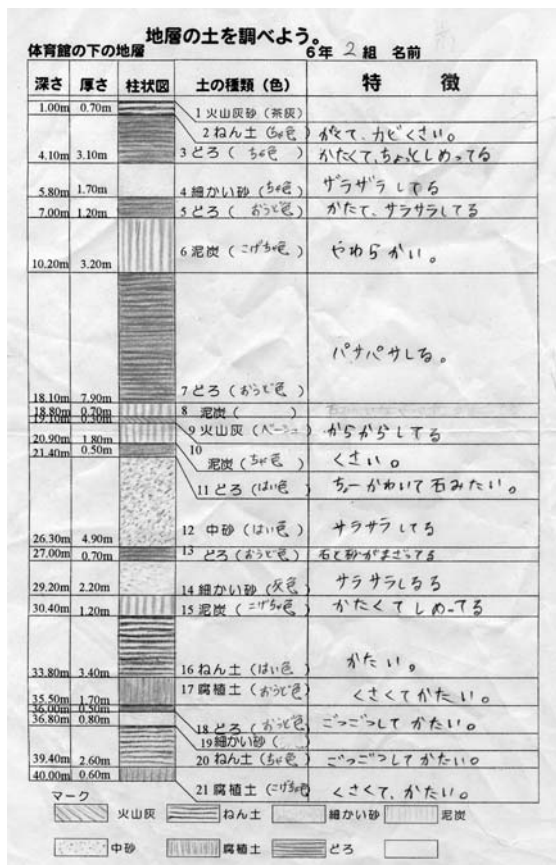 地層の土を調べよう。
体育館の下の地層 6年 2組 名前
深さ 厚さ 柱状図 土の種類（色） 特 徴
1.00m 0.70m 1 火山灰砂（茶灰）
2 ねん土（ちゃ色） かたくて、カビくさい。
4.10m 3.10m 3 どろ（ ちゃ色 ） かたくて、ちょっとしめってる
5.80m 1.70m 4 細かい砂（ちゃ色） ザラザラしてる
7.00m 1.20m 5 どろ（ おうど色 ） かたて、サラサラしてる
10.20m 3.20m 6 泥炭（こげちゃ色） やわらかい。
パサパサしる。
18.10m 7.90m 7 どろ（おうど色）
18.80m 0.70m 8 泥炭（ ）
19.10m 0.30m 9 火山灰（ベーシュ） からからしてる
20.90m 1.80m 10 泥炭（ちゃ色） くさい。
21.40m 0.50m 11 どろ（はい色 ） ちょーかわいて石みたい。
26.30m 4.90m 12 中砂（はい色 ） サラサラしてる
27.00m 0.70m 13 どろ（おうど色） 石と砂がまざってる
29.20m 2.20m 14 細かい砂（灰色 ） サラサラしるる
30.40m 1.20m 15 泥炭（こげちゃ色） かたくてしめってる
33.80m 3.40m 16 ねん土（はい色 ） かたい。
35.50m 1.70m 17 腐植土（おうど色） くさくてかたい。
36.00m 0.50m 18 どろ（おうど色） ごつごつしてかたい。
36.80m 0.80m 19 細かい砂（
39.40m 2.60m 20 ねん土（ちゃ色） ごつごつしてかたい。
40.00m 0.60m 21 腐植土（こげちゃ色） くさくて、かたい。
マーク
火山灰 ねん土 細かい砂 泥炭
中砂 腐植土 どろ